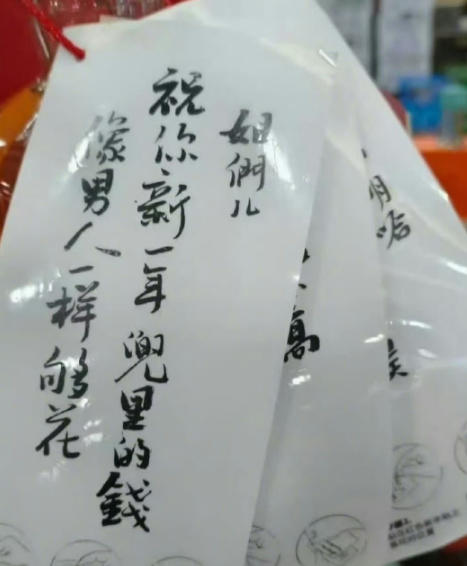 姐們儿
祝你新一年兜里的錢
像男人一样够花
高